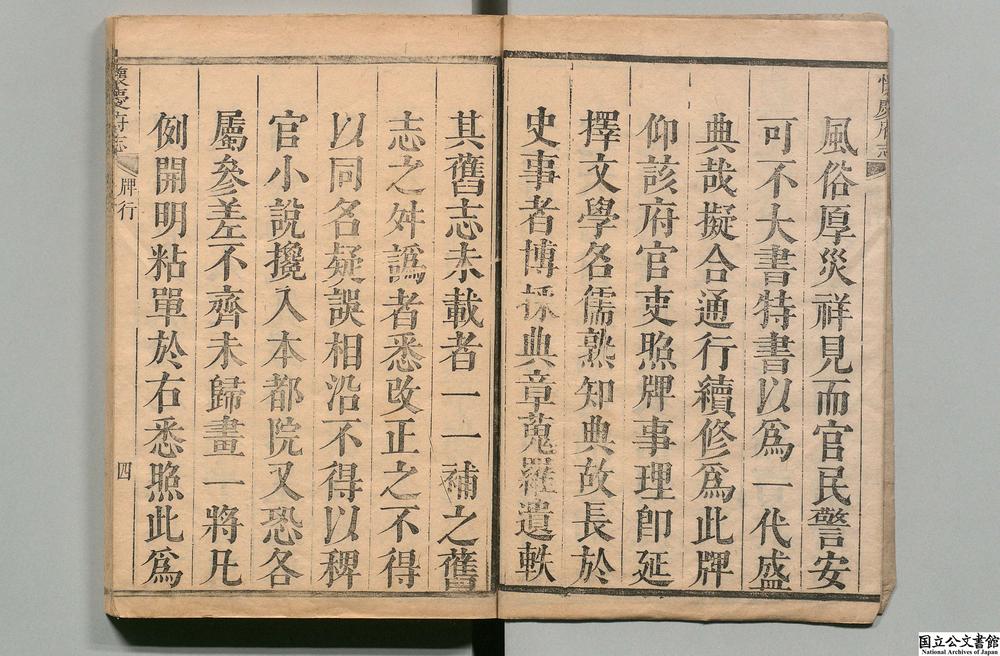 懷慶府志
風俗厚災祥見而官民警安
可不大書特書以爲一代盛
典哉擬合通行續修爲此牌
仰該府官吏照牌事理卽延
擇文學名儒熟知典故長於
史事者博採典章蒐羅遺軼
其舊志未載者一一補之舊
志之舛譌者悉改正之不得
以同名疑誤相沿不得以稗
官小說攙入本都院又恐各
屬參差不齊未歸畫一將凡
例開明粘單於右悉照此爲
懷慶府志
牌行
四
国立公文書館
National Archives of Japan